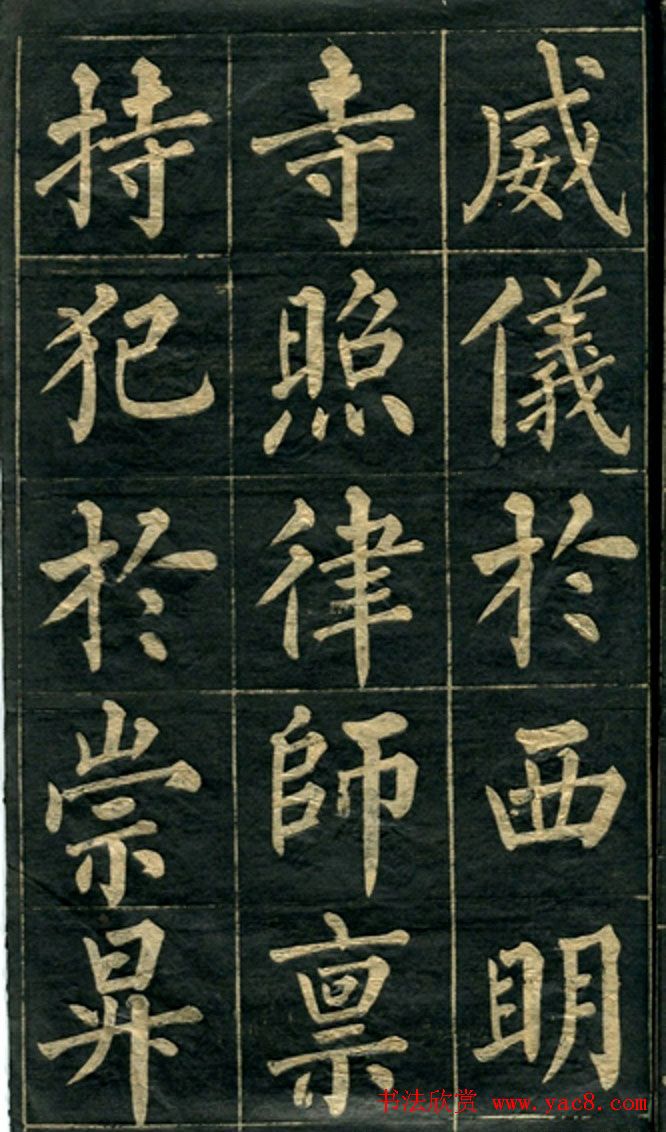 威儀於西明
寺照律師禀
持犯於崇昇
书法欣赏 www.yac8.com